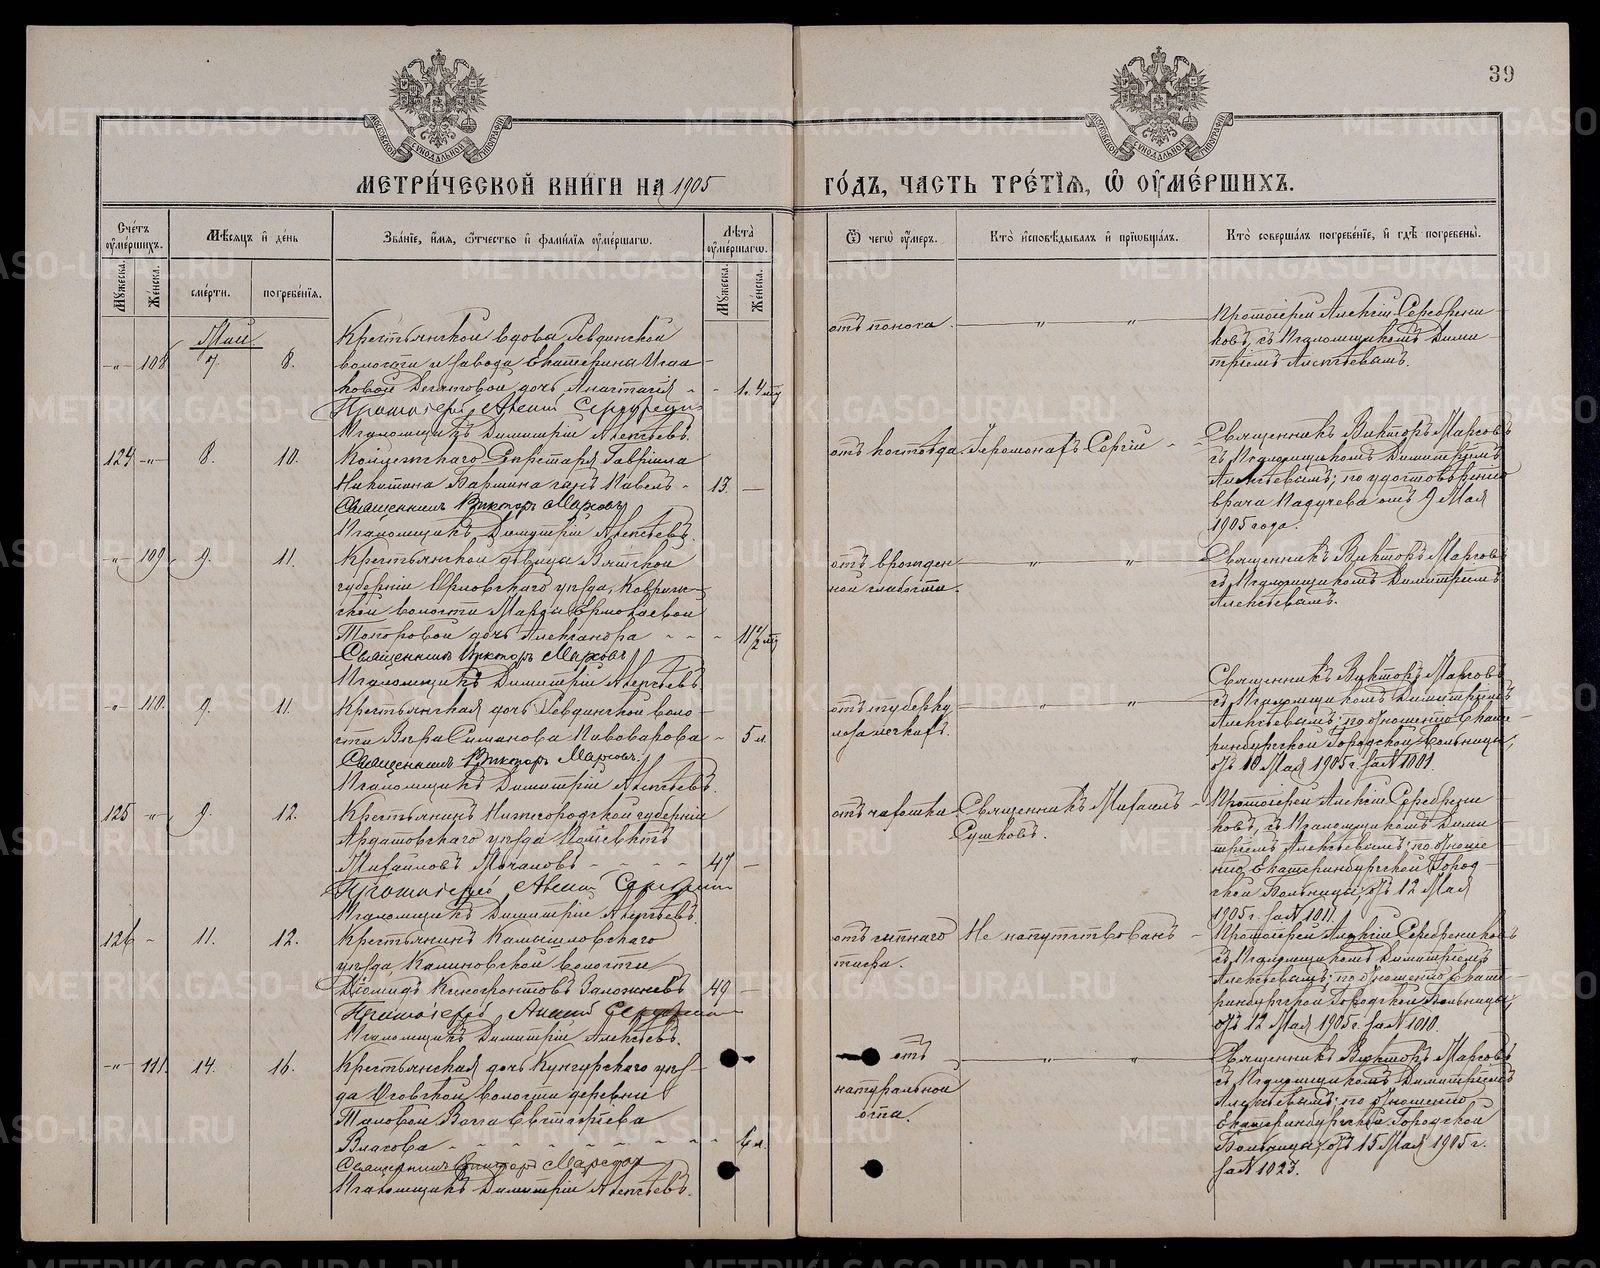 39
МОСКОВСКОЙ СѴНОДАЛЬНОЙ ТИПОГРАФІИ
МОСКОВСКОЙ СѴНОДАЛЬНОЙ ТИПОГРАФІИ
МЕТРИ́ЧЕСКОЙ КНИ́ГИ НА 1905
ГО́ДЪ, ЧАСТЬ ТРЕ́ТІѦ, Ѽ ОУМЕ́РШИХЪ.
Сче́тъ оуме́ршихъ.
Мѣ́сяцъ и де́нь
Зва́нїе, и́мя, ѻ҆́тчество и фами́лїя оуме́ршагѡ.
Лѣ́та оуме́ршагѡ.
Ѿ чегѡ̀ оу́меръ.
Кто̀ и҆сповѣ́дывалъ и прїѡбща́лъ.
Кто̀ соверша́лъ погребе́нїе, и гдѣ̀ погребены̀.
Мꙋ́жеска.
Же́нска.
сме́рти.
погребе́нїя.
Мꙋ́жеска.
Же́нска.
Май
-"- 108 7. 8.
Крестьянской вдовы Ревдинской
волости и завода Екатерины
Десятовой дочь Анастасія - - 1 г. 4 м.
Протоіерей Алексій
Псаломщикъ Димитрій Алексѣевъ.
отъ поноса. " "
Протоіерей Алексій Серебрени
ковъ, съ Псаломщикомъ Дими
тріемъ Алексѣевымъ.
124 -"- 8. 10.
Секретаря Гавріила
Никитина сынъ Павелъ - 13. -
Священникъ Викторъ Марковъ
Псаломщикъ Димитрій Алексѣевъ.
отъ Іеромонахъ Сергій -
Священникъ Викторъ Марковъ
съ Псаломщикомъ Димитріемъ
Алексѣевымъ; по удостовѣренію
врача Падучева отъ 9 Мая
1905 года.
-"- 109 9. 11.
Крестьянской дѣвицы Вятской
губерніи Орловскаго уѣзда,
ской волости Марѳы Ермолаевой
Топоровой дочь Александра - - 11 1/2 м.
Священникъ Викторъ Марковъ
Псаломщикъ Димитрій Алексѣевъ.
отъ врожден
ной слабости. " "
Священникъ Викторъ Марковъ
съ Псаломщикомъ Димитріемъ
Алексѣевымъ.
-"- 110. 9. 11.
Крестьянская дочь Ревдинской воло
сти Вѣра Симанова Пивоварова - 5 л.
Священникъ Викторъ Марковъ.
Псаломщикъ Димитрій Алексѣевъ.
отъ туберку
лоза легкихъ. " "
Священникъ Викторъ Марковъ
съ Псаломщикомъ Димитріемъ
Алексѣевымъ; по отношенію Екате
ринбургской Городской Больницы,
отъ 10 Мая 1905 г. за № 1001.
125 -"- 9. 12.
Крестьянинъ Нижегородской губерніи
Ардатовскаго уѣзда Поліевктъ
Михаиловъ Мочаловъ - - - - 47 -
Протоіерей Алексій
Псаломщикъ Димитрій Алексѣевъ.
отъ чахотки. Священникъ Михаилъ
Сушковъ.
Протоіерей Алексій Серебрени
ковъ, съ Псаломщикомъ Дими
тріемъ Алексѣевымъ; по отноше
нію Екатеринбургской Город
ской Больницы, отъ 12 Мая
1905 г. за № 1011.
126 - 11. 12.
Крестьянинъ Камышловскаго
уѣзда Калиновской волости
Діомидъ 49 -
Протоіерей Алексій
Псаломщикъ Димитрій Алексѣевъ.
отъ сыпного
тифа. Не напутствованъ -
Протоіерей Алексій Серебрениковъ
съ Псаломщикомъ Димитріемъ
Алексѣевымъ; по отношенію Екате
ринбургской Городской Больницы,
отъ 12 Мая 1905 г. за № 1010.
-"- 111. 14. 16.
Крестьянская дочь Кунгурскаго уѣз
да волости деревни
Власова - - - - - - - - 6 л.
Священникъ Викторъ Марковъ
Псаломщикъ Димитрій Алексѣевъ.
отъ
натуральной
оспы. " "
Священникъ Викторъ Марковъ
съ Псаломщикомъ Димитріемъ
Алексѣевымъ; по отношенію
Екатеринбургской Городской
Больницы, отъ 15 Мая 1905 г.
за № 1023.
METRIKI.GASO-URAL.RU